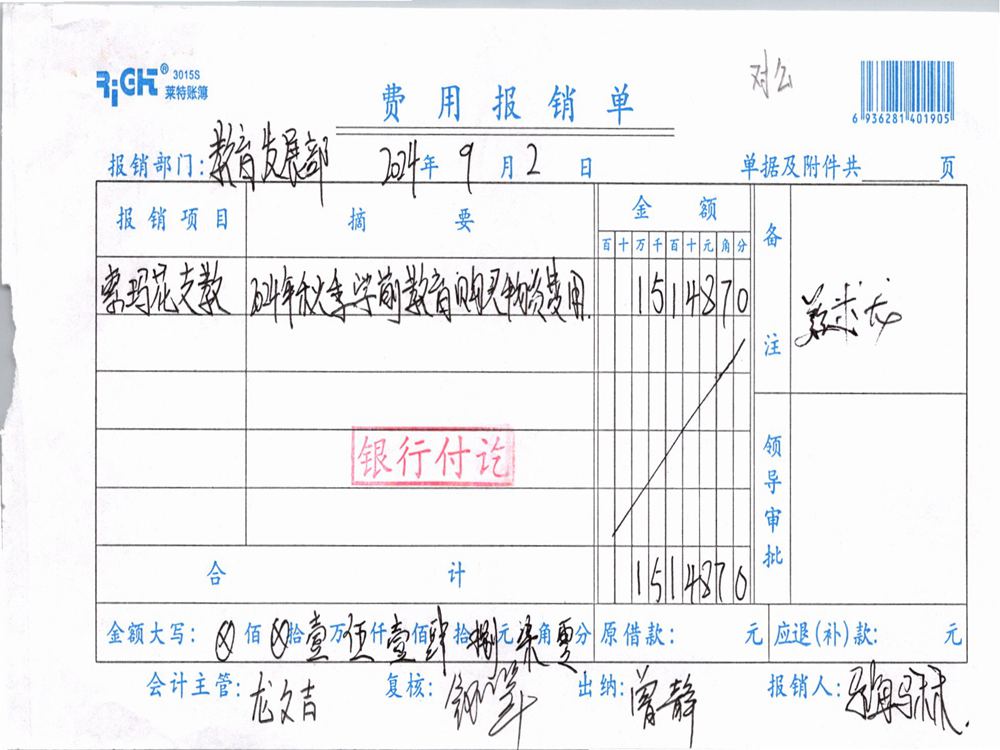 RiGHT® 3015S
莱特账簿
费用报销单
对公
6 936281 401905
报销部门:教育发展部 2024年9月2日 单据及附件共 页
报销项目 摘要 金额 备注
百十万千百十元角分
索玛花支教 2024年秋季学前教育购买物资费用 1514870
银行付讫
领导审批
合计 1514870
金额大写:⊗佰⊗拾壹万伍仟壹佰肆拾捌元柒角零分 原借款: 元 应退(补)款: 元
会计主管:龙文吉 复核: 出纳:曾静 报销人: